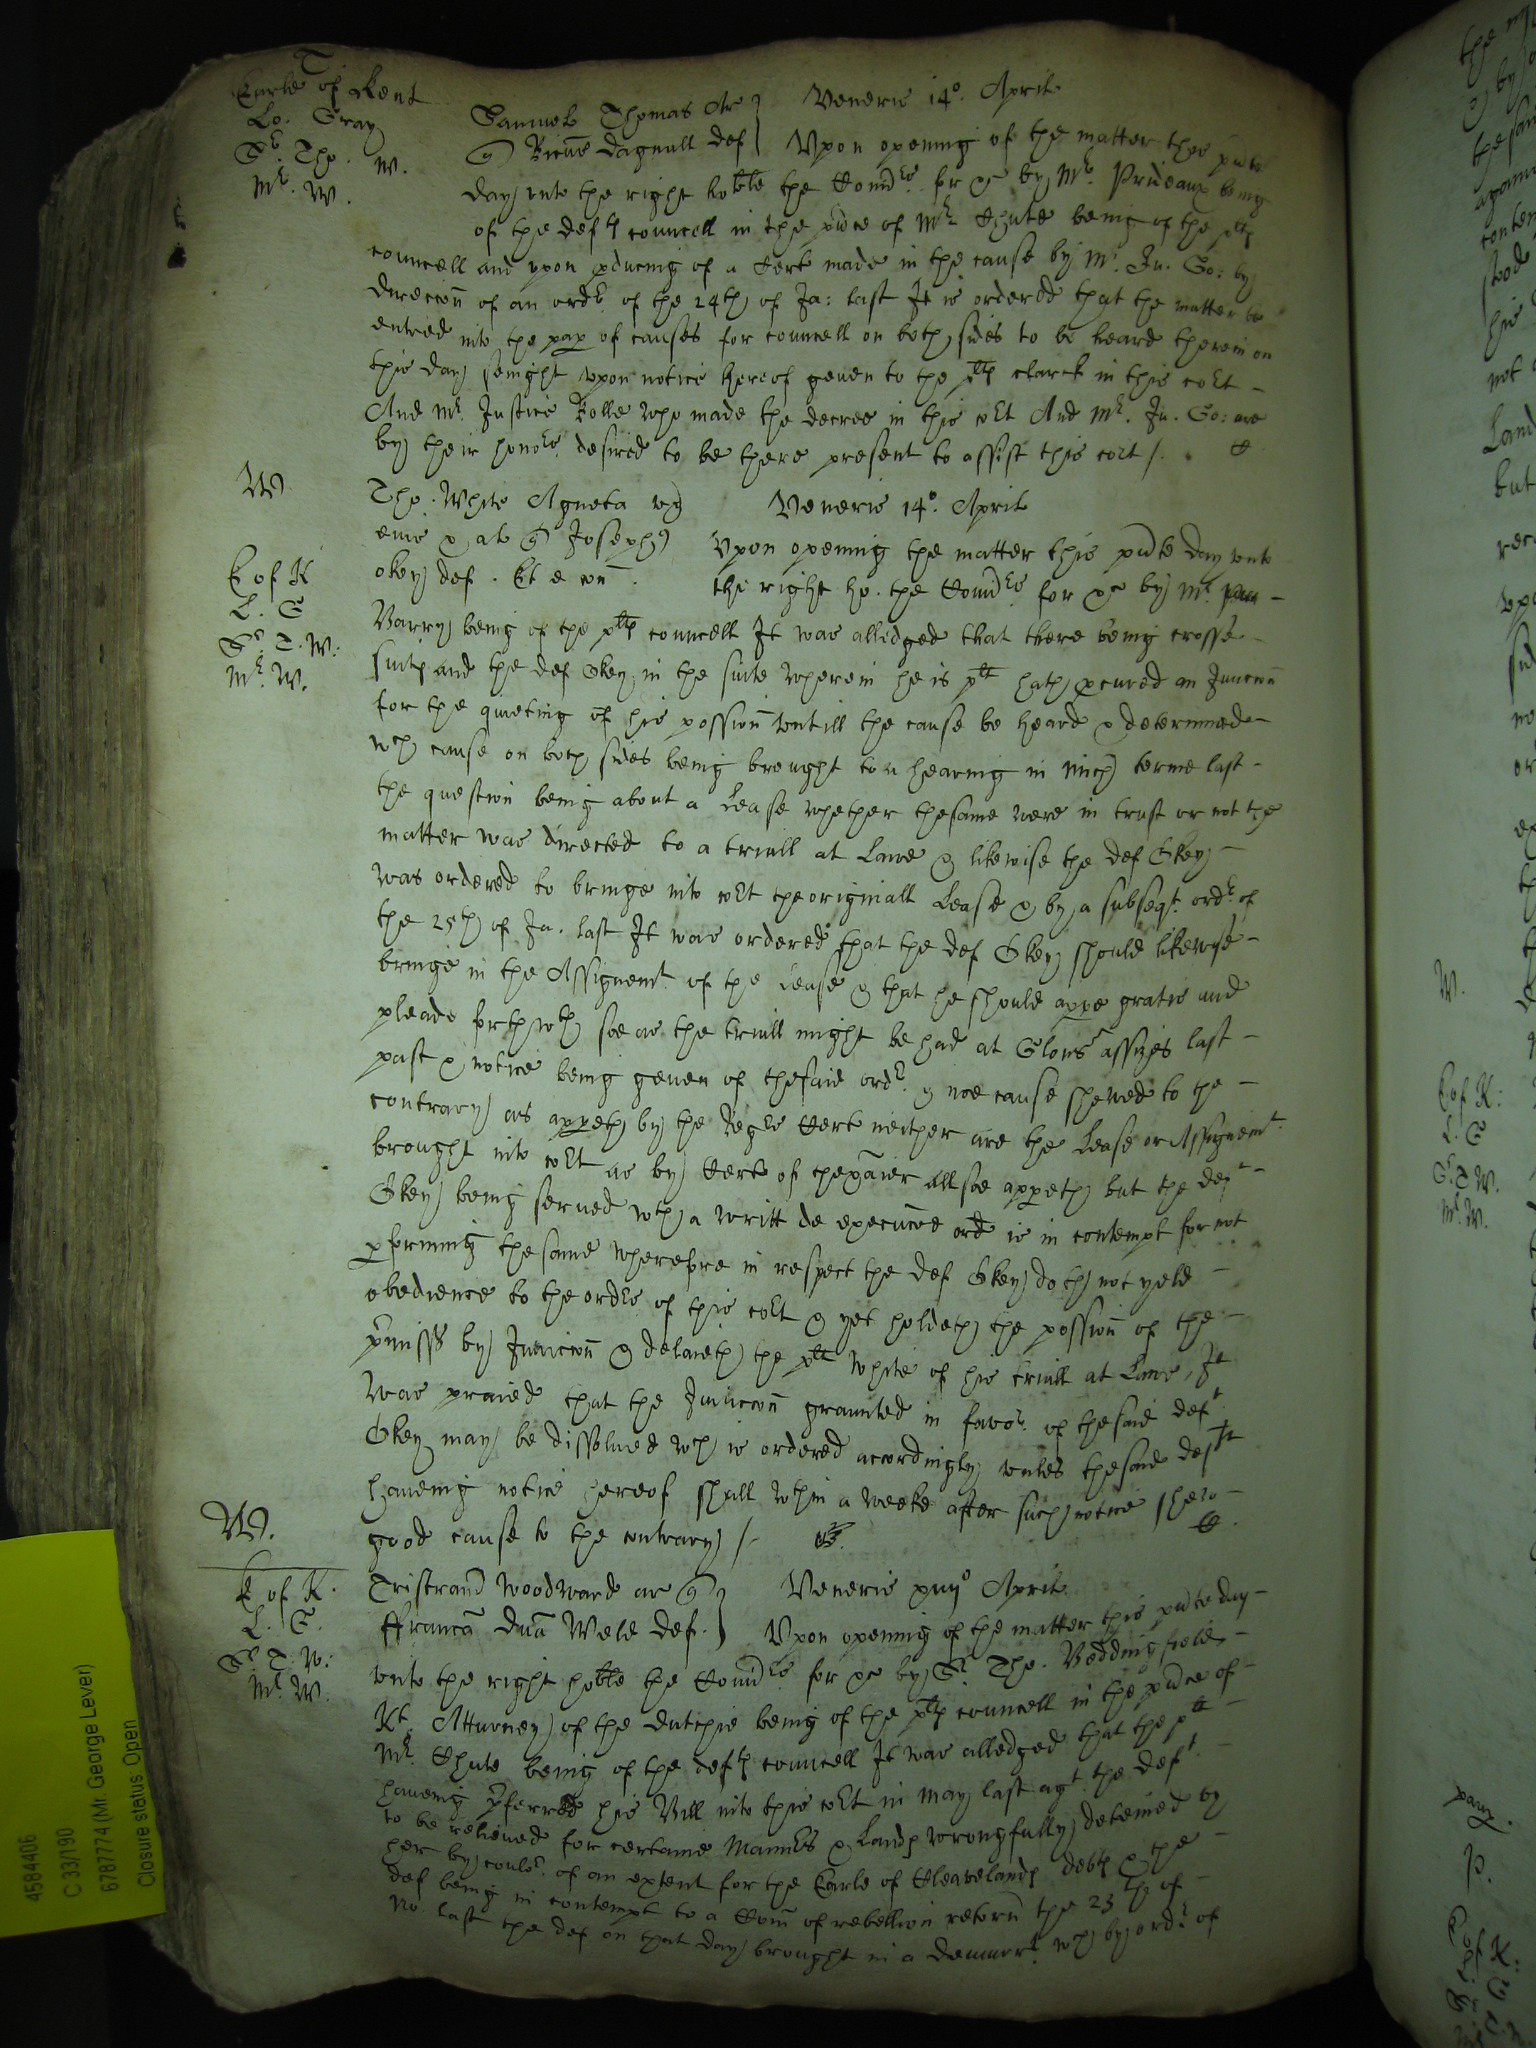 T
Earle of Kent
Lo. Gray
Sr. Tho. W.
Mr. W.
Samuel Thomas Ar
Veneris 14o. April
q Ricus dagnall def
Upon opening of the matter this pnte
day unto the right hoble the Comrs. for &c by Mr. Prideaux being
of the defts councell in the pnce of Mr. Chute being of the plts
councell and upon pducing of a Cert made in the cause by Mr. Ju. Go: by
direccon of an ordr. of the 24th of Ja: last It is ordered that the matter be
entred into the pap of causes for councell on both sides to be heard therein on
this day senight upon notice hereof geven to the plts clark in this cort
And Mr. Justice Rolle who made the decree in this cort And Mr. Ju. Go: are
by their honors. desired to be there present to assist this cort /.
W
Tho. White Agneta ux
Veneris 14o. April
eius & al q Josephus
Upon opening the matter this pnte day unto
okey def. Et e con.
the right ho. the Comrs for &c by Mr.
Varry being of the plts councell It was alledged that there being crosse
E of K
L. G
Sr. T. W:
Mr. W.
suits and the def Okey in the suite wherein he is plt hath pcured an Iniuncon
for the quieting of his possion untill the cause be heard & determined
wch cause on both sides being brought to a hearing in Mich terme last
the question being about a Lease whether thesame were in trust or not the
matter was directed to a triall at Lawe & likewise the def Okey
was ordered to bringe into cort the originall Lease & by a subseqt. ordr. of
the 25th of Ja. last It was ordered that the def Okey should likewise
bringe in the Assignemt. of the Lease & that he should appe gratis and
pleade forthwth soe as the triall might be had at Glouc assizes last
past & notice being geven of thesaid ordr. & noe cause shewed to the
contrary as appeth by the Regrs Cert neither are the Lease or Assignemt.
brought into cort as by Cert of the allsoe appeth but the deft
Okey being served wth a writt de execucoe ord is in contempt for not
pforming thesame wherefore in respect the def Okey doth not yeld
obedience to the ordrs of this cort & yet holdeth the possion of the
pmisss by Iniuncon & delaieth the plt White of his triall at Lawe, It
was praied that the Iniuncon graunted in favor. of thesaid deft.
Okey may be dissolved wch is ordered accordingly unles thesaid deft
haveing notice hereof shall wthin a weeke after such notice shew
good cause to the contrary /.
W.
E of K.
L. G.
Sr T. W:
Mr. W.
Tristram Woodward ar q
Veneris xiiijo April
ffrancam Dnam Weld def.
Upon opening of the matter this pnte day
unto the right hoble the Comrs for &c by Sr. Tho. Beddingfield
Kt. Atturney of the Dutchie being of the plts councell in the pnce of
Mr. Chute being of the defts councell It was alledged that the plt
haveing pferred his Bill into this cort in May last agt. the deft.
to be relieved for certaine Mannors & Lands wrongfully deteined by
her by coulor. of an extent for the Earle of Cleavelands debts & the
def being in contempt to a Com of rebellion retorn the 25th of
No. last the def on that day brought in a demurr. wch by ordr of
4584406
C 33/190
6787774 (Mr. George Lever)
Closure status: Open
W.
E of K:
L. G
Sr. T W.
Mr. W.